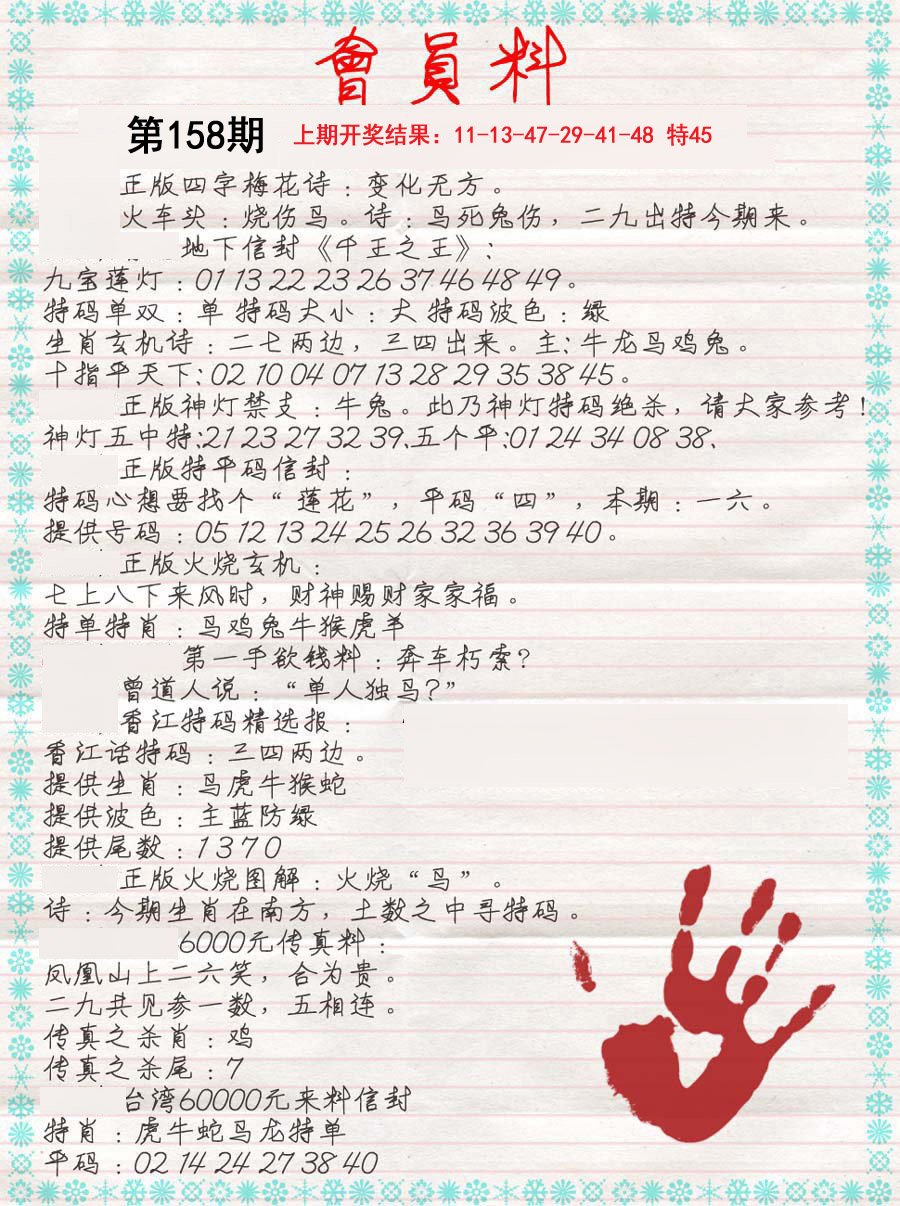 會員料
第158期 上期开奖结果：11-13-47-29-41-48 特45
正版四字梅花诗：变化无方。
火车头：烧伤鸟。诗：鸟死兔伤，二九出特今期来。
地下信封《千王之王》：
九宝莲灯：01 13 22 23 26 37 46 48 49。
特码单双：单 特码大小：大 特码波色：绿
生肖玄机诗：二七两边，三四出来。主：牛龙鸟鸡兔。
十指平天下：02 10 04 07 13 28 29 35 38 45。
正版神灯禁支：牛兔。此乃神灯特码绝杀，请大家参考！
神灯五中特：21 23 27 32 39.五个平：01 24 34 08 38、
正版特平码信封：
特码心想要找个“莲花”，平码“四”，本期：一六。
提供号码：05 12 13 24 25 26 32 36 39 40。
正版火烧玄机：
七上八下来风时，财神赐财家家福。
特单特肖：鸟鸡兔牛猴虎羊
第一手欲钱料：奔车朽索？
曾道人说：“单人独鸟？”
香江特码精选报：
香江话特码：三四两边。
提供生肖：鸟虎牛猴蛇
提供波色：主蓝防绿
提供尾数：1 3 7 0
正版火烧图解：火烧“鸟”。
诗：今期生肖在南方，土数之中寻特码。
6000元传真料：
凤凰山上二六笑，合为贵。
二九共见参一数，五相连。
传真之杀肖：鸡
传真之杀尾：7
台湾60000元来料信封
特肖：虎牛蛇鸟龙特单
平码：02 14 24 27 38 40